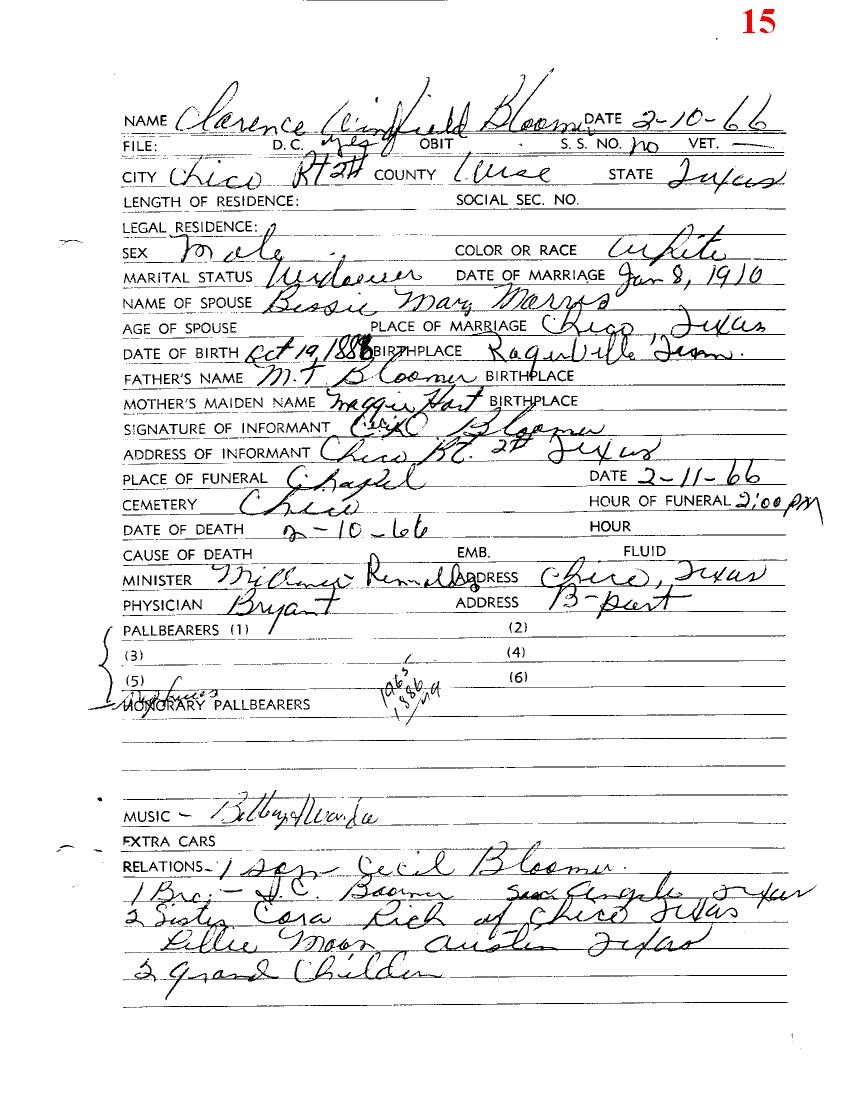 15
NAME Clarence Winfield Bloomer DATE 2-10-66
FILE: D.C. yes OBIT S. S. NO. no VET. —
CITY Chico Rt 2# COUNTY Wise STATE Texas
LENGTH OF RESIDENCE: SOCIAL SEC. NO.
LEGAL RESIDENCE:
SEX Male COLOR OR RACE White
MARITAL STATUS Widower DATE OF MARRIAGE Jan 8, 1910
NAME OF SPOUSE Bessie Mary Morris
AGE OF SPOUSE PLACE OF MARRIAGE Chico, Texas
DATE OF BIRTH Oct 19, 1886 BIRTHPLACE RogerVille Tenn.
FATHER'S NAME M.T Bloomer BIRTHPLACE
MOTHER'S MAIDEN NAME Maggie Hart BIRTHPLACE
SIGNATURE OF INFORMANT Cecil Bloomer
ADDRESS OF INFORMANT Chico Rt. 2# Texas
PLACE OF FUNERAL Chapel DATE 2-11-66
CEMETERY Chico HOUR OF FUNERAL 2:00 PM
DATE OF DEATH 2-10-66 HOUR
CAUSE OF DEATH EMB. FLUID
MINISTER ADDRESS Chico, Texas
PHYSICIAN Bryant ADDRESS B-port
PALLBEARERS (1) (2)
(3) (4)
(5) (6)
HONORARY PALLBEARERS
1965
1886
79
MUSIC —
EXTRA CARS
RELATIONS- 1 son Cecil Bloomer.
1 Bro; - J.C. Boomer San Angelo Texas
2 Sister Cora Rich of Chico Texas
Lillie Moon, Austin Texas
2 grand Childen